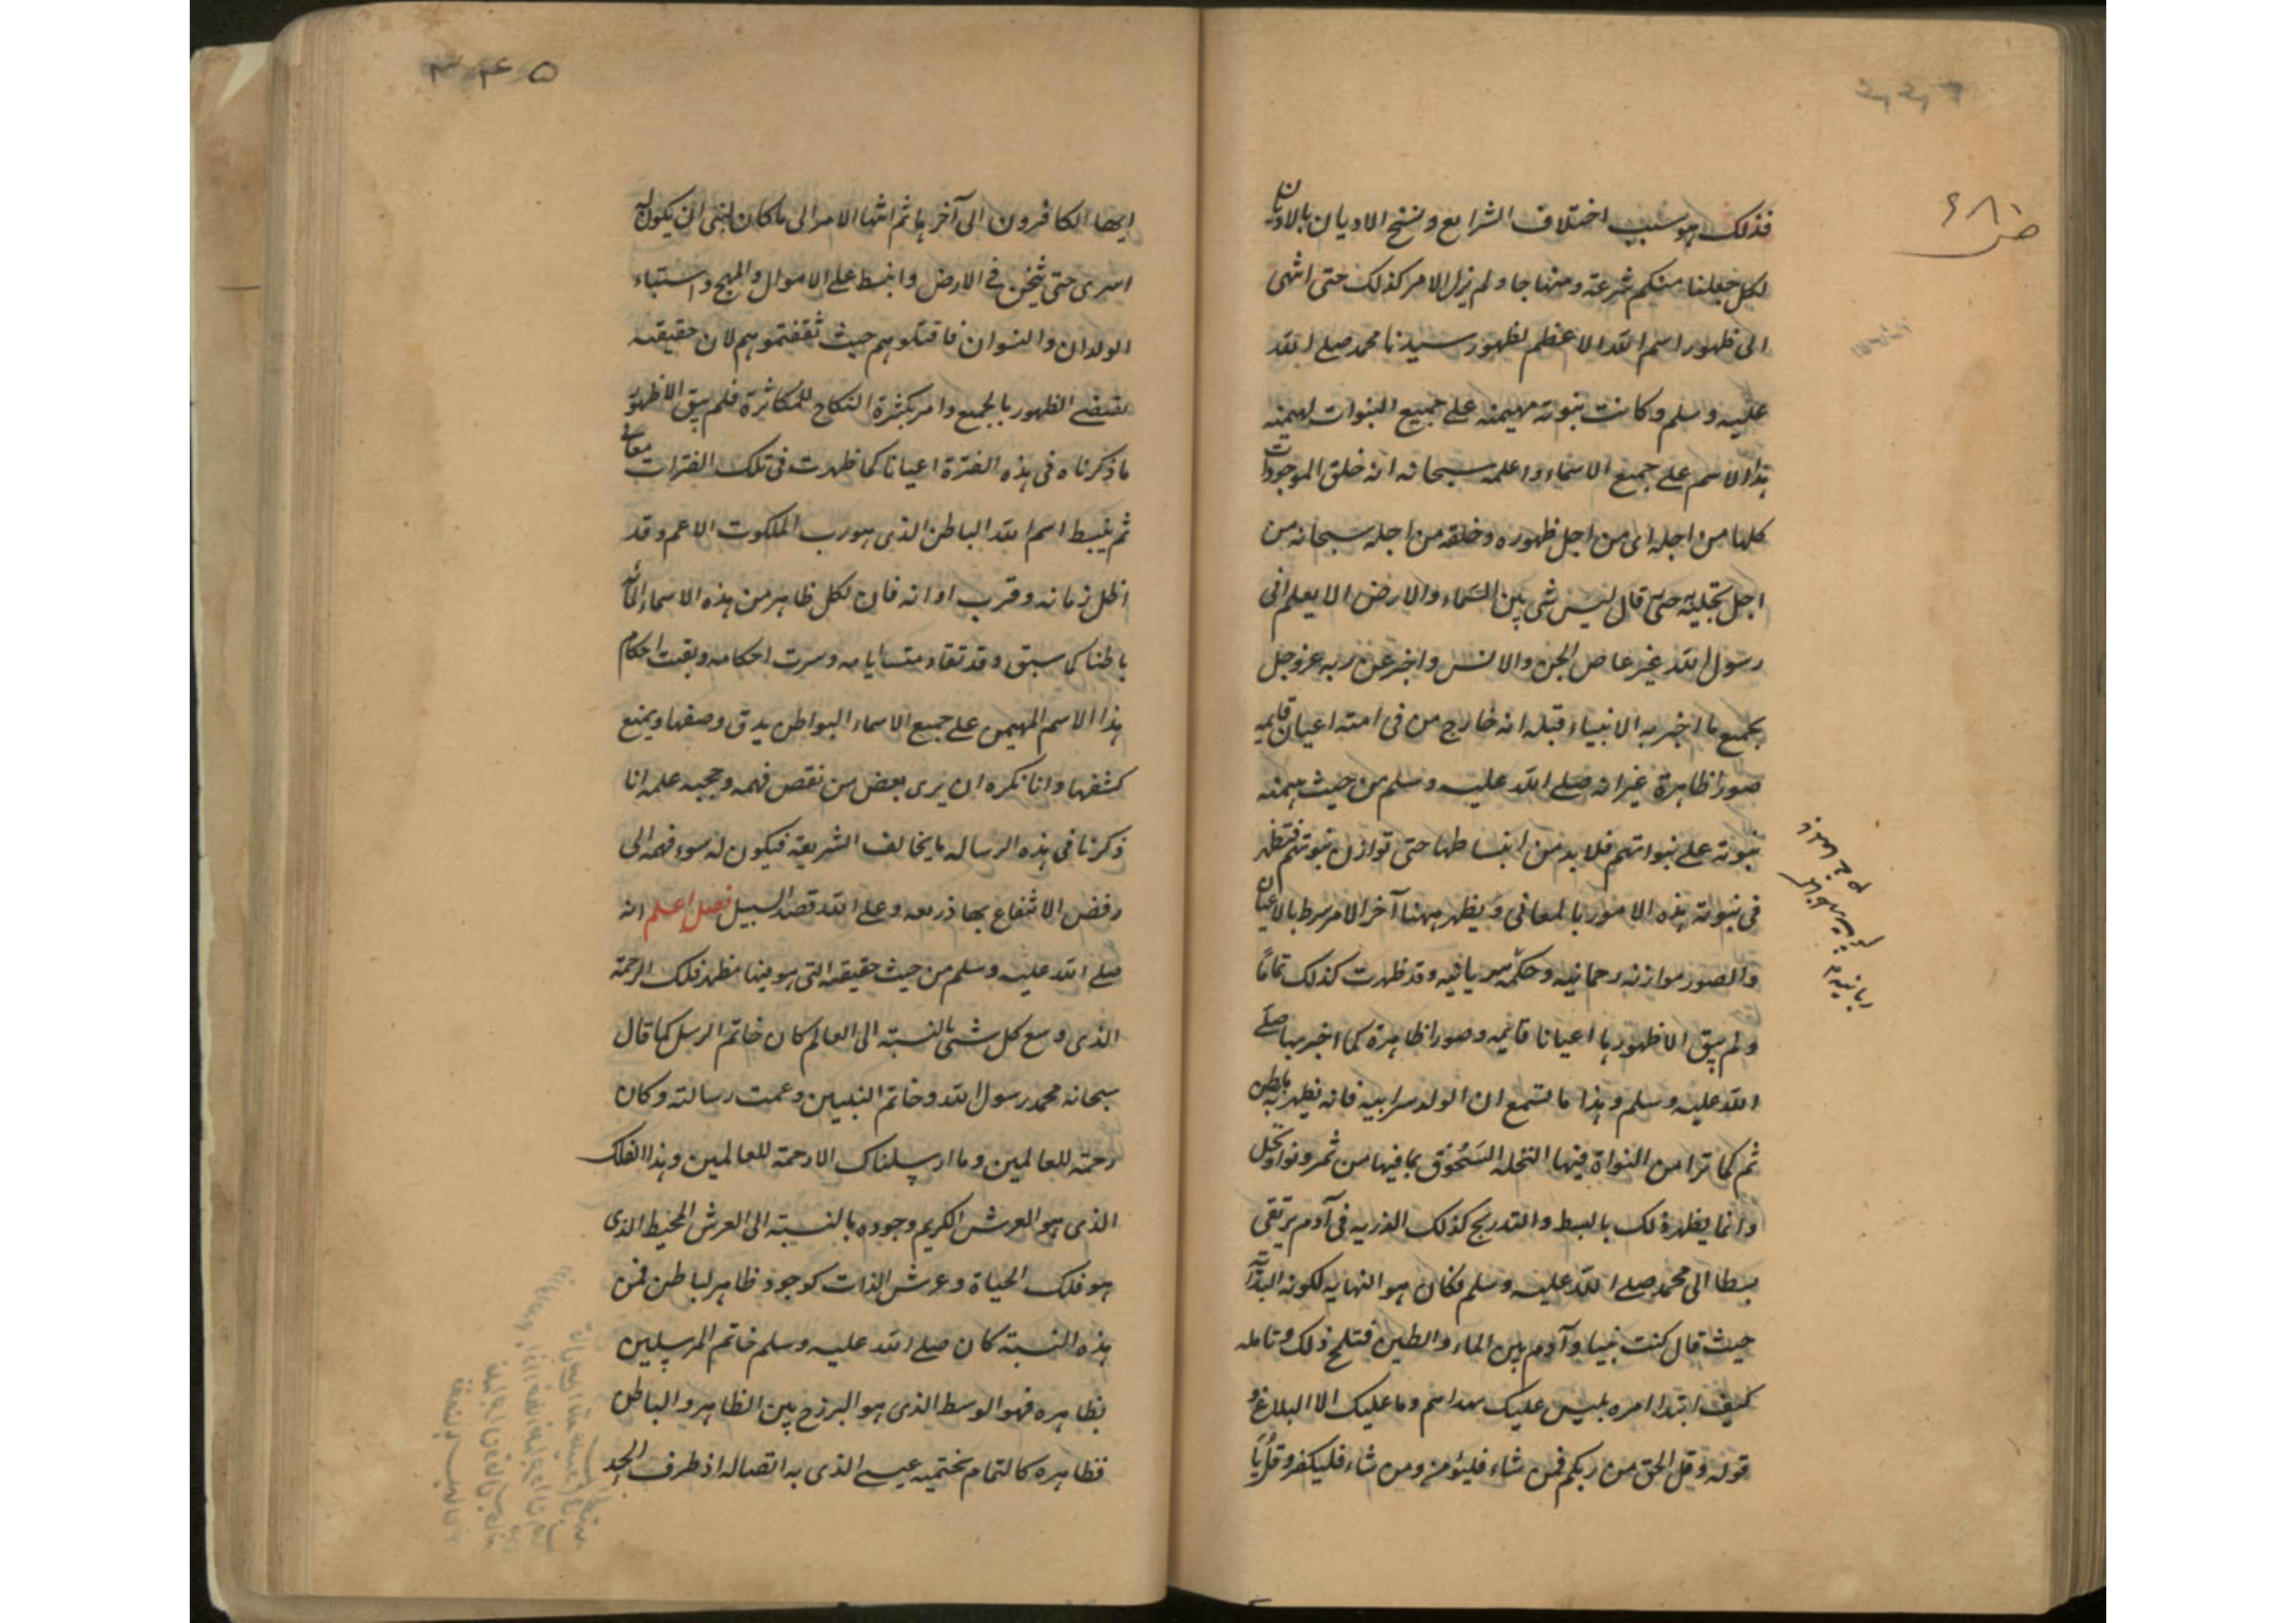 فذلك هو سبب اختلاف الشرايع ونسخ الاديان بالاديان
لكل جعلنا منكم شرعة ومنهاجا ولم يزل الامر كذلك حتى انتهى
الى ظهور اسم الله الاعظم لظهور سيدنا محمد صلى الله
عليه وسلم وكانت نبوته مهيمنه على جميع النبوات لهيمنه
هذا الاسم على جميع الاسماء واعلمه سبحانه انه خلق الموجودات
كلها من اجله اى من اجل ظهوره وخلقه من اجله سبحانه من
اجل تجليه حتى قال ليس شى بين السماء والارض الا يعلم انى
رسول الله غير عاص الجن والانس واخبر عن ربه عز وجل
بجميع ما اخبر به الانبياء قبله انه خارج من فى امته اعيان قايمه
صورا ظاهرة غير انه صلى الله عليه وسلم من حيث هيمنه
نبوته على نبواتهم فلا بد من انبساطها حتى توازن نبوتهم فتظهر
فى نبوته هذه الامور بالمعانى ويظهر ههنا آخر الامر سرط بالاعيان
والصور موازنه رحمانيه وحكمه سريانيه وقد ظهرت كذلك تماما
ولم يبق الا ظهورها اعيانا قايمه وصورا ظاهرة كما اخبر بها صلى
الله عليه وسلم وهذا ما تسمع ان الولد سر ابيه فانه يظهر به باطن
ثم كما ترا من النواة فيها النخله السحوق بما فيها من ثمر ونوا ونخل
وانما يظهر ذلك بالبسط والتدريج كذلك الذريه فى آدم يرتقى
بسطا الى محمد صلى الله عليه وسلم فكان هو النهايه لكونه البداية
حيث قال كنت نبيا وآدم بين الماء والطين فتلمح ذلك وتامله
كيف ابتدا امره بليس عليك هداهم وما عليك الا البلاغ و
قوله وقل الحق من ربكم فمن شاء فليؤمن ومن شاء فليكفر وقل يا
ص ٦٨١
ربانيه
ايها الكافرون الى آخرها ثم انتها الامر الى ما كان لنبى ان يكون له
اسرى حتى يثخن فى الارض وانبسط على الاموال والمهج واستباء
الولدان والنسوان فاقتلوهم حيث ثقفتموهم لان حقيقته
تقتضى الظهور بالجميع وامر بكثرة النكاح للمكاثرة فلم يبق الا ظهور
ما ذكرناه فى هذه الفترة اعيانا كما ظهرت فى تلك الفترات معانى
ثم ينبسط اسم الله الباطن الذى هو رب الملكوت الاعم وقد
اظل زمانه وقرب اوانه فان لكل ظاهر من هذه الاسماء المائه
باطنا كما سبق وقد تقادمت ايامه وسرت احكامه وبقيت احكام
هذا الاسم المهيمن على جميع الاسماء البواطن يدق وصفها ويمنع
كشفها وانا نكره ان يرى بعض من نقص فهمه وحجبه علمه انا
ذكرنا فى هذه الرساله ما يخالف الشريعة فيكون له سوء فهمه الى
رفض الانتفاع بها ذريعه وعلى الله قصد السبيل فصل اعلم انه
صلى الله عليه وسلم من حيث حقيقته التى هو فيها مظهر فلك الرحمة
الذى وسع كل شى بالنسبة الى العالم كان خاتم الرسل كما قال
سبحانه محمد رسول الله وخاتم النبيين وعمت رسالته وكان
رحمة للعالمين وما ارسلناك الا رحمة للعالمين وهذا الفلك
الذى هو العرش الكريم وجوده بالنسبة الى العرش المحيط الذى
هو فلك الحياة وعرش الذات كوجود ظاهر لباطن فمن
هذه النسبة كان صلى الله عليه وسلم خاتم المرسلين
بظاهره فهو الوسط الذى هو البرزخ بين الظاهر والباطن
فظاهره كالتمام بختميه عيسى الذى به اتصاله اذ طرف الحد
٣٤٥